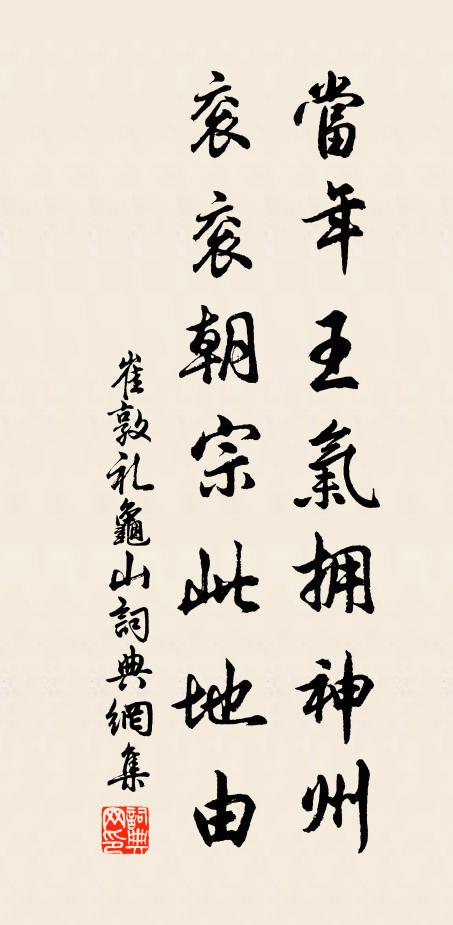 當年王氣擁神州
衮衮朝宗此地由
崔敦礼龜山詞典網集
詞典网印